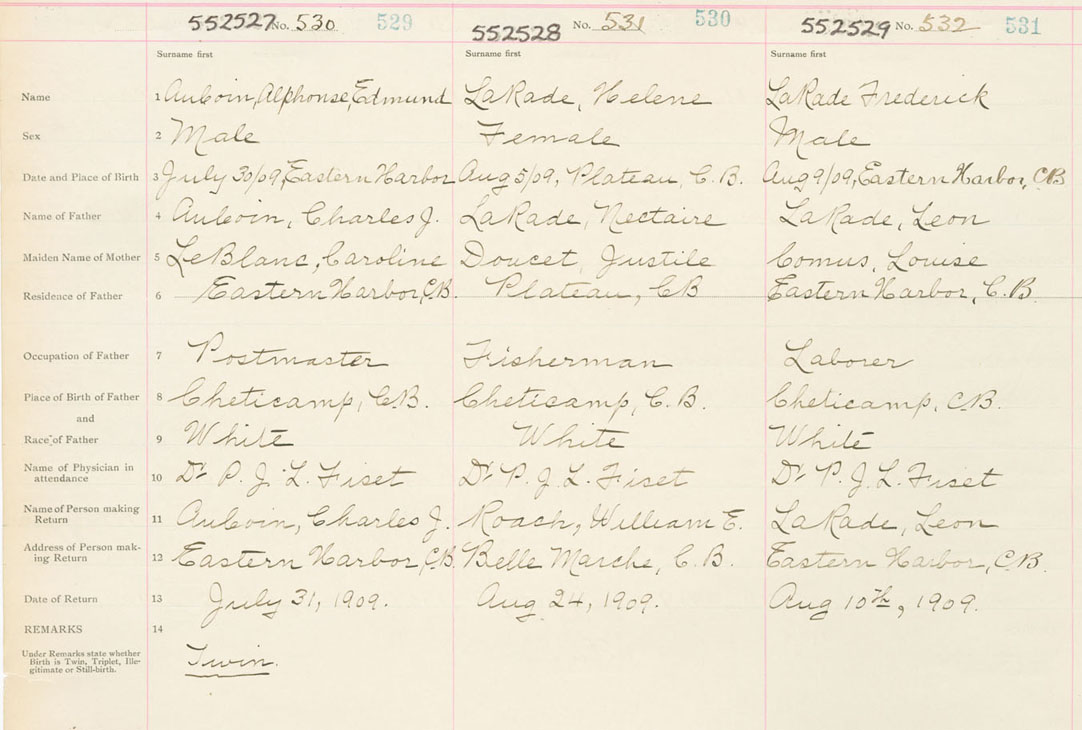 552527 No. 530 529 552528 No. 531 530 552529 No. 532 531
Surname first Surname first Surname first
Name 1 AuCoin, Alphonse, Edmund LaRade, Helene LaRade Frederick
Sex 2 Male Female Male
Date and Place of Birth 3 July 30/09, Eastern Harbor Aug 5/09, Plateau, C.B. Aug 9/09, Eastern Harbor, CB
Name of Father 4 AuCoin, Charles J. LaRade, Nectaire LaRade, Leon
Maiden Name of Mother 5 LeBlanc, Caroline Doucet, Justile Comus, Louise
Residence of Father 6 Eastern Harbor, C.B. Plateau, CB Eastern Harbor, C.B.
Occupation of Father 7 Postmaster Fisherman Laborer
Place of Birth of Father 8 Cheticamp, C.B. Cheticamp, C.B. Cheticamp, C.B.
and
Race of Father 9 White White White
Name of Physician in
attendance 10 Dr P. J. L. Fiset Dr P. J. L. Fiset Dr P. J. L. Fiset
Name of Person making
Return 11 AuCoin, Charles J. Roach, William E. LaRade, Leon
Address of Person mak-
ing Return 12 Eastern Harbor, C.B. Belle Marche, C.B. Eastern Harbor, C.B.
Date of Return 13 July 31, 1909. Aug 24, 1909. Aug 10th, 1909.
REMARKS 14
Under Remarks state whether
Birth is Twin, Triplet, Ille-
gitimate or Still-birth.
Twin.